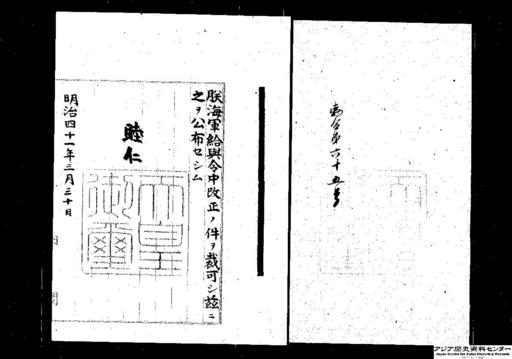 勅令第六十五号
朕海軍給與令中改正ノ件ヲ裁可シ玆ニ
之ヲ公布セシム
睦仁
天皇
御璽
明治四十一年三月三十日
アジア歴史資料センター
Japan Center for Asian Historical Records